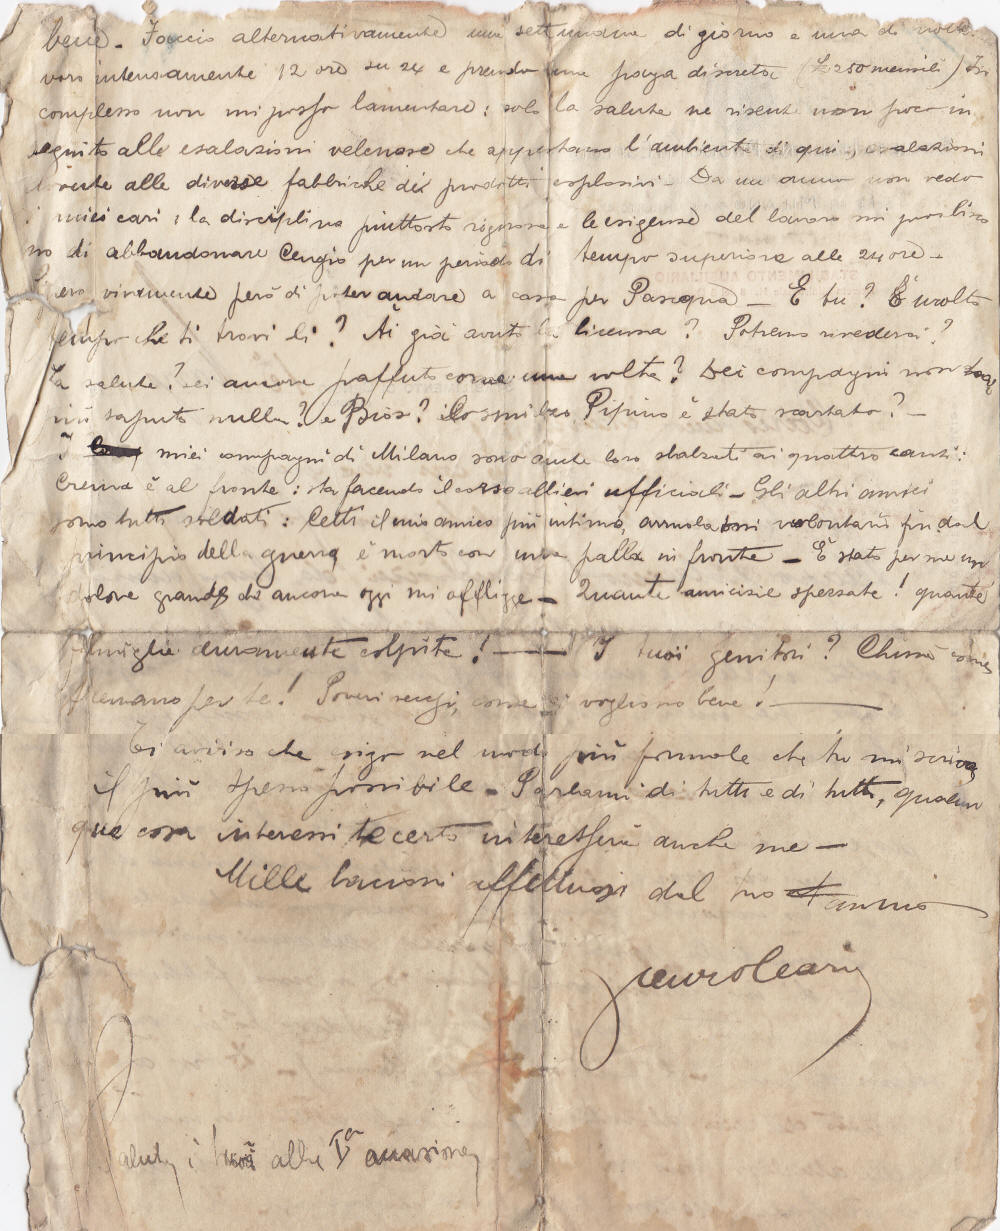 bene - Faccio alternativamente una settimana di giorno e una di notte.
voro intensamente 12 ore su 24 e prendo una paga discreta (£ 250 mensili) In
complesso non mi posso lamentare: solo la salute ne risente non poco in
seguito alle esalazioni velenose che appestano l'ambiente di qui, esalazioni
dovute alle diverse fabbriche dei prodotti esplosivi - Da un anno non vedo
i miei cari; la disciplina piuttosto rigorosa e le esigenze del lavoro mi proibisco
no di abbandonare Cengio per un periodo di tempo superiore alle 24 ore -
Spero vivamente però di poter andare a casa per Pasqua - E tu? È molto
tempo che ti trovi lì? Ài già avuto la licenza? Potremo rivederci?
La salute? sei ancora paffuto come una volta? Dei compagni non hai
più saputo nulla? e Bios? Lo smilzo Pipino è stato scartato? -
I miei compagni di Milano sono anche loro sbalzati ai quattro canti:
Crema è al fronte: sta facendo il corso allievi ufficiali - Gli altri amici
sono tutti soldati: Cetti il mio amico più intimo, arruolatosi volontario fin dal
principio della guerra è morto con una palla in fronte - È stato per me un
dolore grande che ancora oggi mi affligge - Quante amicizie spezzate! quante
famiglie duramente colpite! - I tuoi genitori? Chissà come
tremano per te! Poveri vecchi, come ci vogliono bene!
Ti avviso che esigo nel modo più formale che tu mi scriva
il più spesso possibile - Parlami di tutti e di tutto, qualun
que cosa interessi te certo interesserà anche me -
Mille bacioni affettuosi dal tuo
saluta i tuoi alla Iª occasione